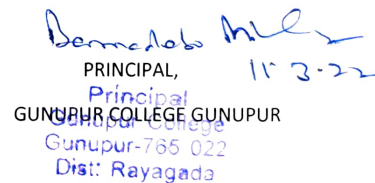 11.3.22
PRINCIPAL,
Principal
GUNUPUR COLLEGE GUNUPUR
Gunupur College
Gunupur-765 022
Dist: Rayagada